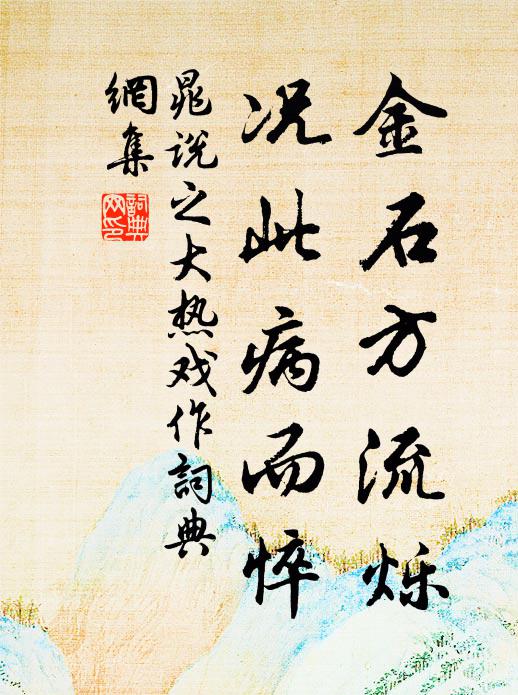 金石方流烁
况此病而悴
晁说之大热戏作詞典
網集
詞典
网印